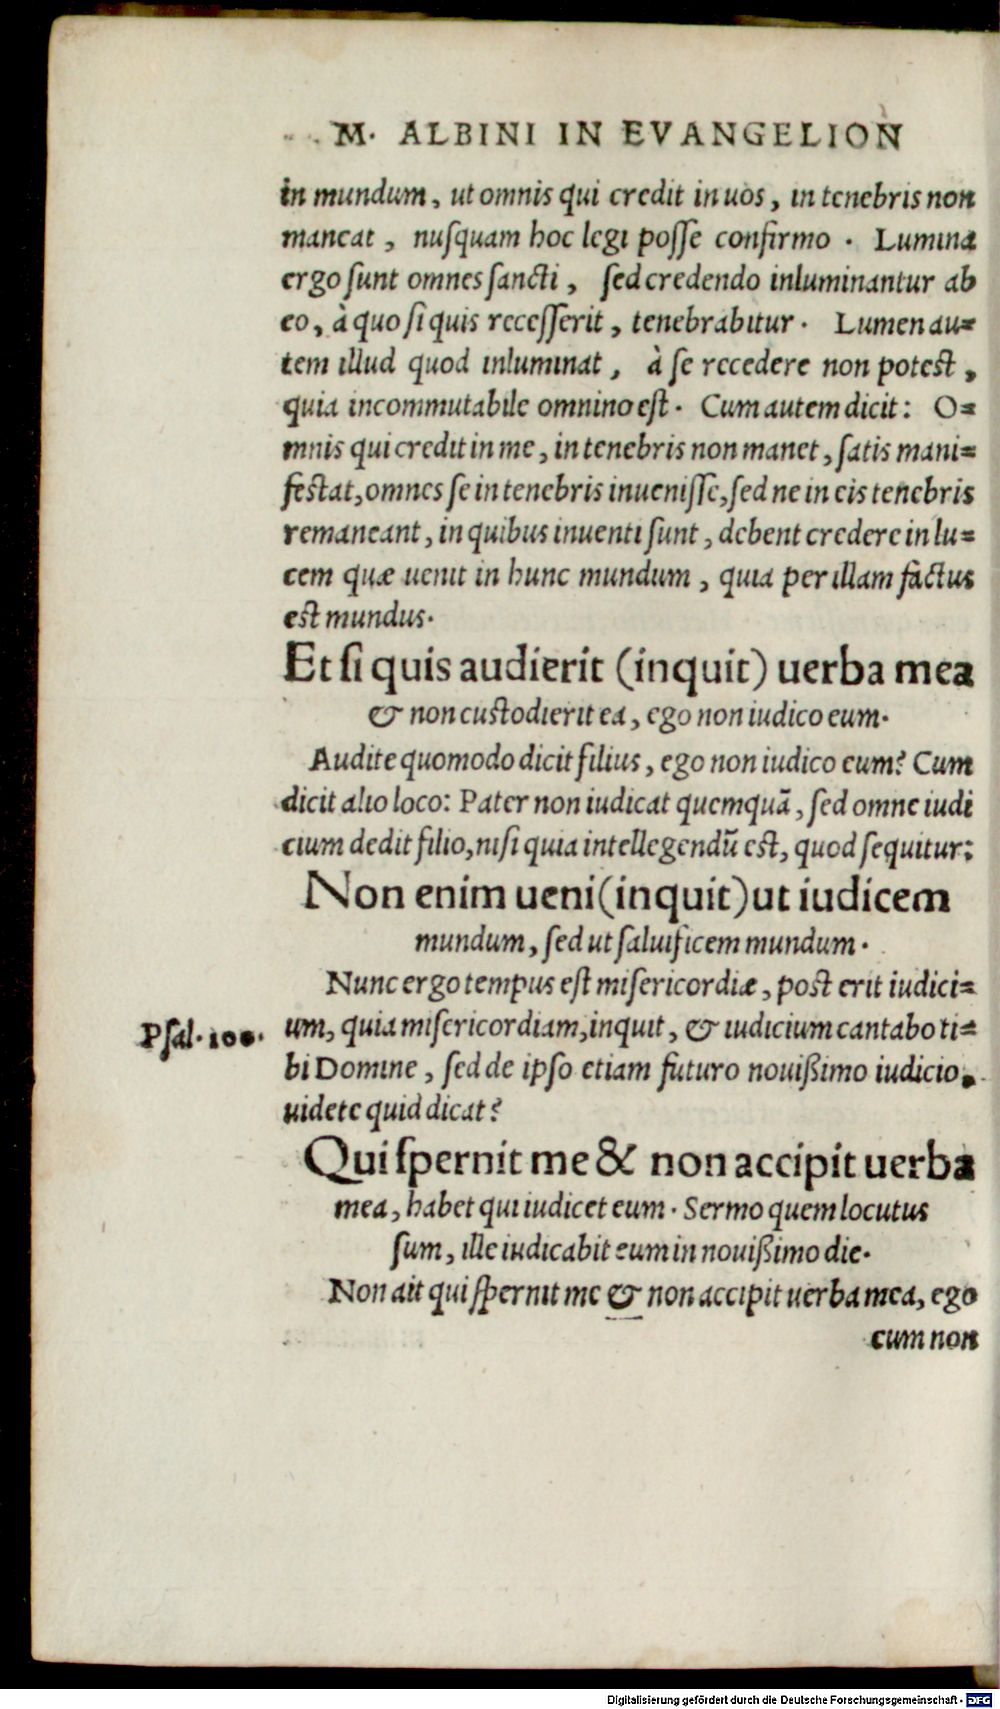 M. ALBINI IN EVANGELION
in mundum, ut omnis qui credit in uos, in tenebris non
maneat, nuſquam hoc legi poſſe confirmo. Lumina
ergo ſunt omnes ſancti, ſed credendo inluminantur ab
eo, à quo ſi quis receſſerit, tenebrabitur. Lumen au=
tem illud quod inluminat, à ſe recedere non poteſt,
quia incommutabile omnino eſt. Cum autem dicit: O=
mnis qui credit in me, in tenebris non manet, ſatis mani=
feſtat, omnes ſe in tenebris inueniſſe, ſed ne in eis tenebris
remaneant, in quibus inuenti ſunt, debent credere in lu=
cem quæ uenit in hunc mundum, quia per illam factus
eſt mundus.
Et ſi quis audierit (inquit) uerba mea
& non cuſtodierit ea, ego non iudico eum.
Audite quomodo dicit filius, ego non iudico eum? Cum
dicit alio loco: Pater non iudicat quemquā, ſed omne iudi
cium dedit filio, niſi quia intellegendū eſt, quod ſequitur:
Non enim ueni (inquit) ut iudicem
mundum, ſed ut ſaluificem mundum.
Nunc ergo tempus eſt miſericordiæ, poſt erit iudici=
Pſal. 100.
um, quia miſericordiam, inquit, & iudicium cantabo ti=
bi Domine, ſed de ipſo etiam futuro nouißimo iudicio,
uidete quid dicat?
Qui ſpernit me & non accipit uerba
mea, habet qui iudicet eum. Sermo quem locutus
ſum, ille iudicabit eum in nouißimo die.
Non ait qui ſpernit me & non accipit uerba mea, ego
eum non
Digitalisierung gefördert durch die Deutsche Forschungsgemeinschaft - DFG